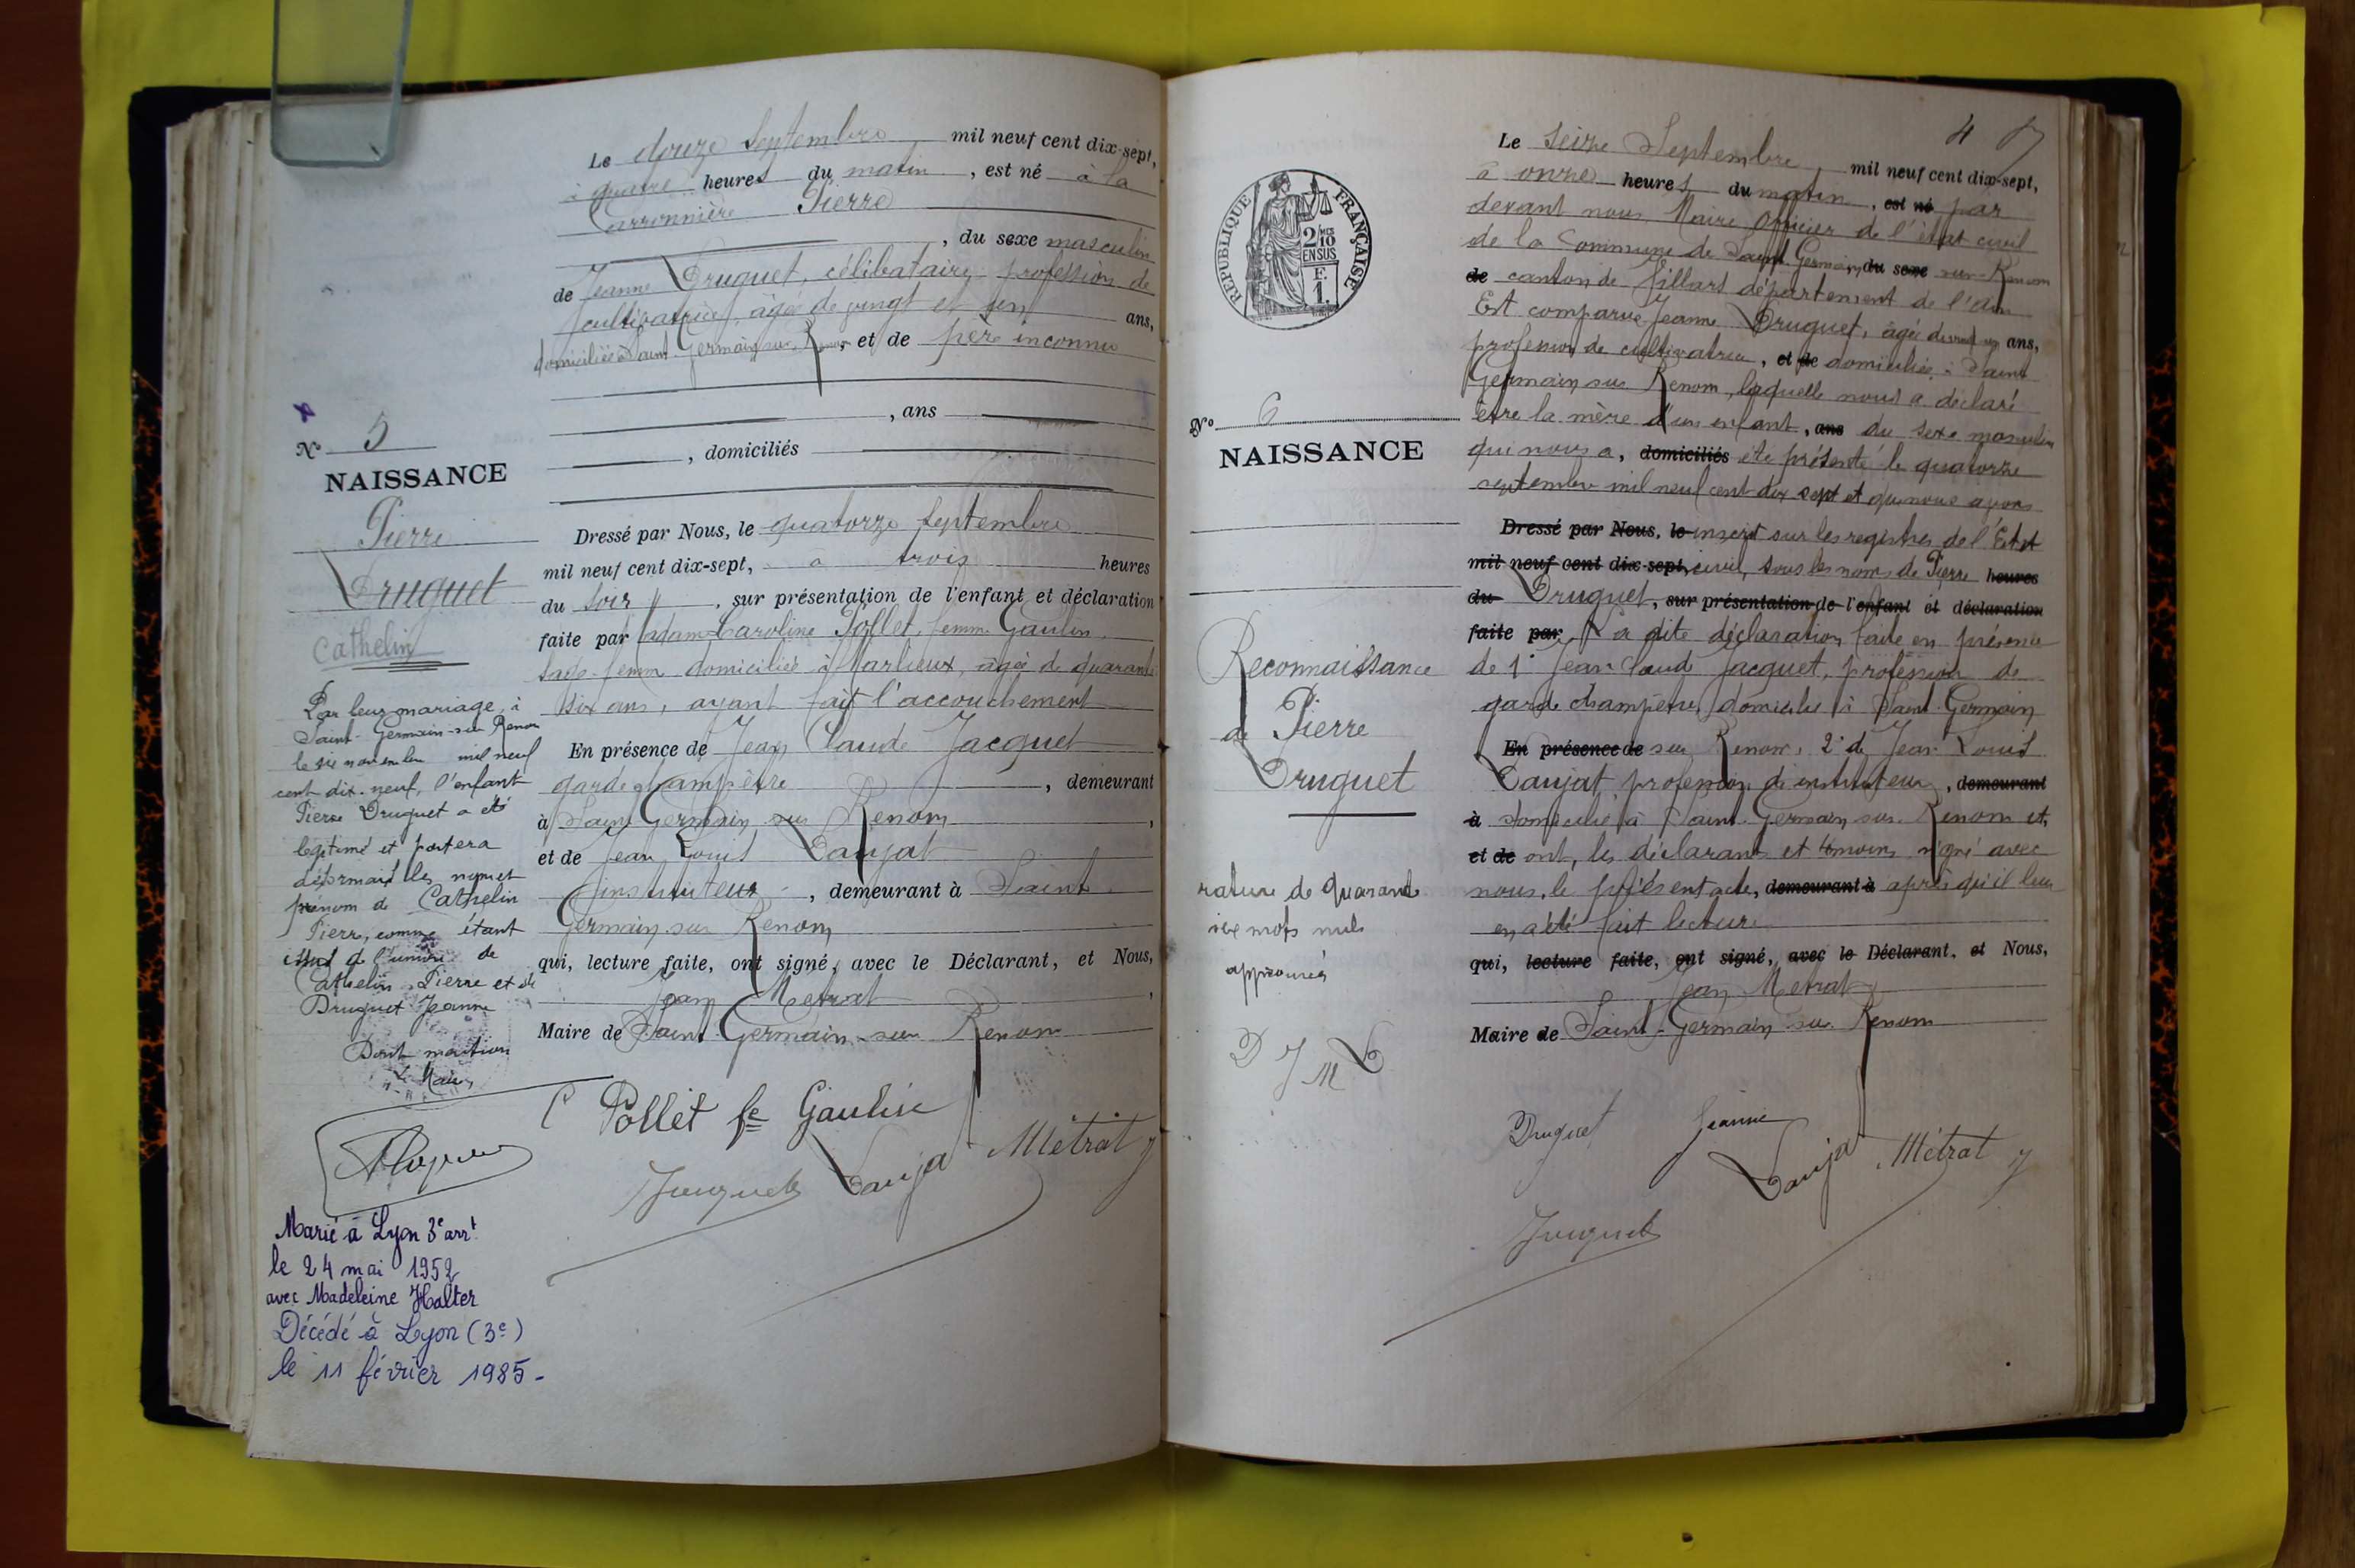 Le douze Septembre mil neuf cent dix-sept,
à quatre heures du matin, est né à la
Carronnière Pierre
, du sexe masculin
de Jeanne Druguet, célibataire, profession de
cultivatrice, âgée de vingt et un ans,
domiciliée à Saint Germain sur Renom, et de père inconnu
, ans
, domiciliés
Dressé par Nous, le quatorze septembre
mil neuf cent dix-sept, à trois heures
du soir, sur présentation de l'enfant et déclaration
faite par Caroline Pollet, femme Gaulin
sage-femme domiciliée à Marlieux, âgée de quarante
six ans, ayant fait l'accouchement
En présence de Jean Claude Jacquet
garde champêtre, demeurant
à Saint Germain sur Renom,
et de Jean Louis Daujat
instituteur, demeurant à Saint
Germain sur Renom
qui, lecture faite, ont signé, avec le Déclarant, et Nous,
Jean Metrat,
Maire de Saint-Germain-sur Renom
C Pollet fe Gaulin
Jacquet Daujat Métrat J
N° 5
NAISSANCE
Pierre
Druguet
Cathelin
Par leur mariage, à
Saint-Germain-sur Renom
le six novembre mil neuf
cent dix-neuf, l'enfant
Pierre Druguet a été
légitimé et portera
désormais les nom et
prénom de Cathelin
Pierre, comme étant
issu de l'union de
Cathelin Pierre et de
Druguet Jeanne
Dont mention
Le Maire,
Marié à Lyon 3e arrt
le 24 mai 1952
avec Madeleine Halter
Décédé à Lyon (3e)
le 11 février 1985-
4
RÉPUBLIQUE FRANÇAISE
2/10 MES
EN SUS
F.
1.
N° 6
NAISSANCE
Reconnaissance
de Pierre
Druguet
rature de quarante
six mots nuls
approuvés
D J M D
Le seize Septembre mil neuf cent dix-sept,
à onze heures du matin, est né par
devant nous Maire Officier de l'état civil
de la Commune de Saint Germain du sexe sur-Renom
de canton de Villars département de l'Ain
Est comparue Jeanne Druguet, âgée de vingt un ans,
profession de cultivatrice, et de domiciliée à Saint
Germain sur Renom, laquelle nous a déclaré
être la mère d'un enfant, ans du sexe masculin
qui nous a, domiciliés été présenté le quatorze
septembre mil neuf cent dix sept et que nous avons
Dressé par Nous, le inscrit sur les registres de l'Etat
mil neuf cent dix-sept, civil, sous les noms de Pierre heures
du Druguet, sur présentation de l'enfant et déclaration
faite par La dite déclaration faite en présence
de 1° Jean Claude Jacquet, profession de
garde champêtre, domicilié à Saint Germain
En présence de sur Renom, 2° de Jean Louis
Daujat profession d'instituteur, demeurant
à domicilié à Saint-Germain sur Renom et,
et de ont, les déclarant et témoins signé avec
nous, le présent acte, demeurant à après qu'il leur
en a été fait lecture
qui, lecture faite, ont signé, avec le Déclarant, et Nous,
Jean Metrat
Maire de Saint-Germain sur Renom
Druguet Jeanne
Daujat Métrat J
Jacquet